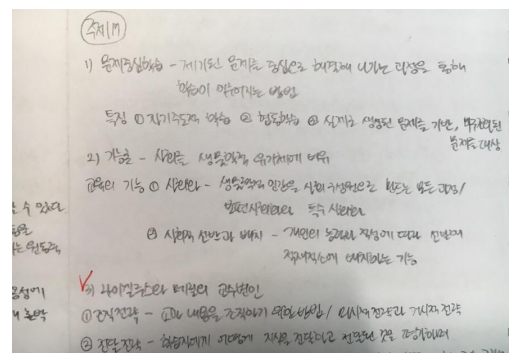 주제 17
1) 문제중심학습 - 제기된 문제를 중심으로 해결해 나가는 과정을 통해
학습이 이루어지는 방법
특징 ① 자기주도적 학습 ② 협동학습 ③ 실제로 생성된 문제를 기반, 비구조화된
문제를 대상
2) 기능론 - 사회를 생물학적 유기체에 비유
교육의 기능 ① 사회화 - 생물학적 인간을 사회구성원으로 만드는 과정/
보편사회화와 특수사회화
② 사회적 선발과 배치 - 개인의 능력과 적성에 따라 선발해
적재적소에 배치하는 기능
3) 라이겔루스와 메릴의 교수변인
① 조직전략 - 교과 내용을 조직하기 위한 방법 / 미시적 전략과 거시적 전략
② 전달전략 - 학습자에게 어떻게 지식을 전달하고 전달된 것을
수 있다